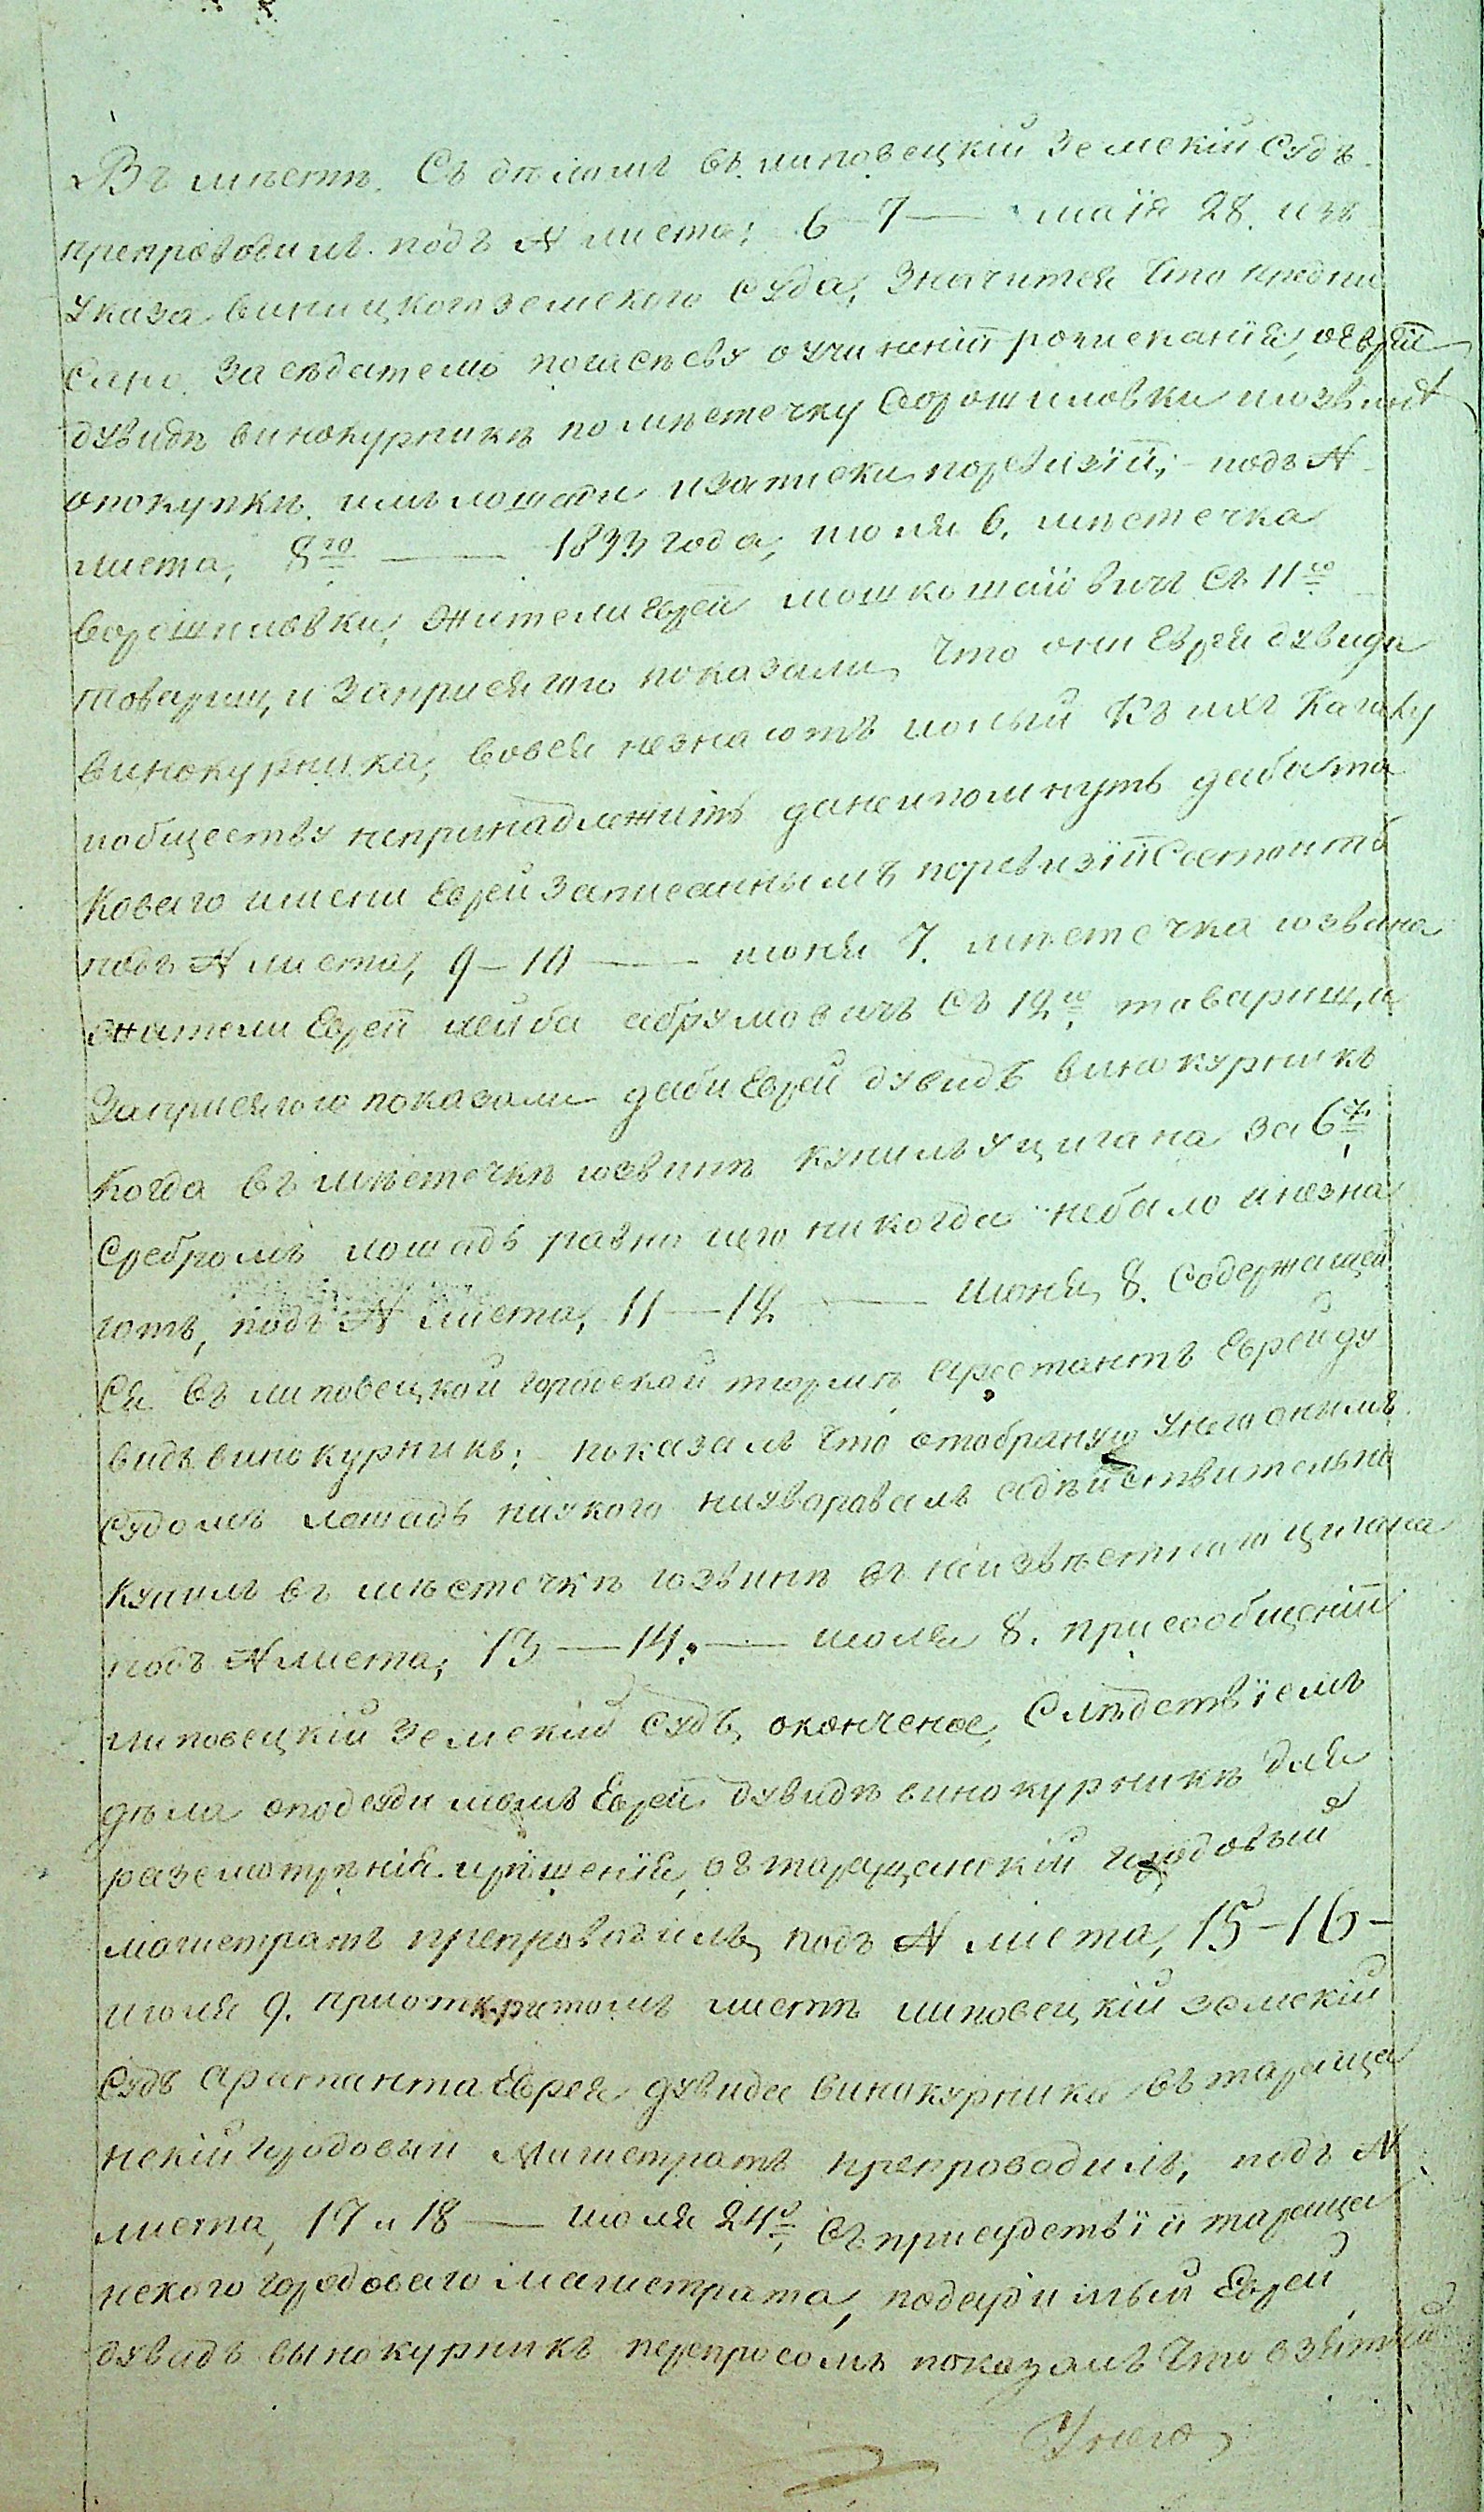 Въ мѣстѣ. Съ дѣломъ въ липовецкій Земскій Судъ
препроводилъ. подъ № листа; 6–7 — маія 28. изъ
указа виницкого земского суда, Значится что предпи
сано Засѣдателю полсѣеву о учиненіи розисканія, оеврей
дувидѣ винокурникѣ по мѣстечку Ворошиловки июзвинѣ
опокупкѣ имъ лошади изаписки поревизіи; подъ №
листа, 8го — 1833 года, июня 6. мѣстечка
Ворошиловки, жители Еврей мошко шаіовичъ съ 11ю
товарищ, и Заприсягою показали, что они Еврей дувида
винокурника, вовся незнаютъ ионый къ ихъ Кагалу
иобществу непринадлежитъ данеипомнутъ дабы та
коваго имени Еврей Записаннымъ поревизіи Состоитъ
подъ № листа, 9–10 — июня 7. мѣстечка юзвина
жители Еврей лейба абрумовичъ съ 12ю товарищ, и
Заприсягою показали дабы Еврей дувидъ винокурникъ
Когда въ мѣстечкѣ юзвинѣ купилъ уцигана за 6
Сребромъ лошадь равно его никогда небыло инезна
ютъ, подъ № листа, 11–12 — Июня, 8. Содержащей
Ся въ липовецкой городской тюрмѣ арестантъ Еврей ду
видъ винокурникъ; показалъ что отобраную унего онымъ
Судомъ лошадь ниукого ниуворовалъ адѣйствительно
купилъ въ мѣстечкѣ юзвинѣ въ неизвѣстного цигана
подъ № листа, 13–14. — июля 8. присообщеніи
липовецкій Земскій Судъ, оконченое, Слѣдствіемъ
дѣла оподсудимомъ Еврей дувидѣ винокурникѣ для
разсмотрѣнія ирѣшенія, въ таращанскій городовый
магистратъ препроводилъ, подъ № листа, 15–16–
июля 9. приоткритомъ листѣ липовецкій земскій
Судъ арестанта Еврея дувида винокурника въ тараща
нскій городовый Магистратъ препроводилъ, подъ №
листа, 17 и 18 — июля 24о, въ присудствіи тараща
нского городоваго магистрата, подсудимый Еврей
дувидъ вынокурникъ перепросомъ показалъ что взятую
Унего